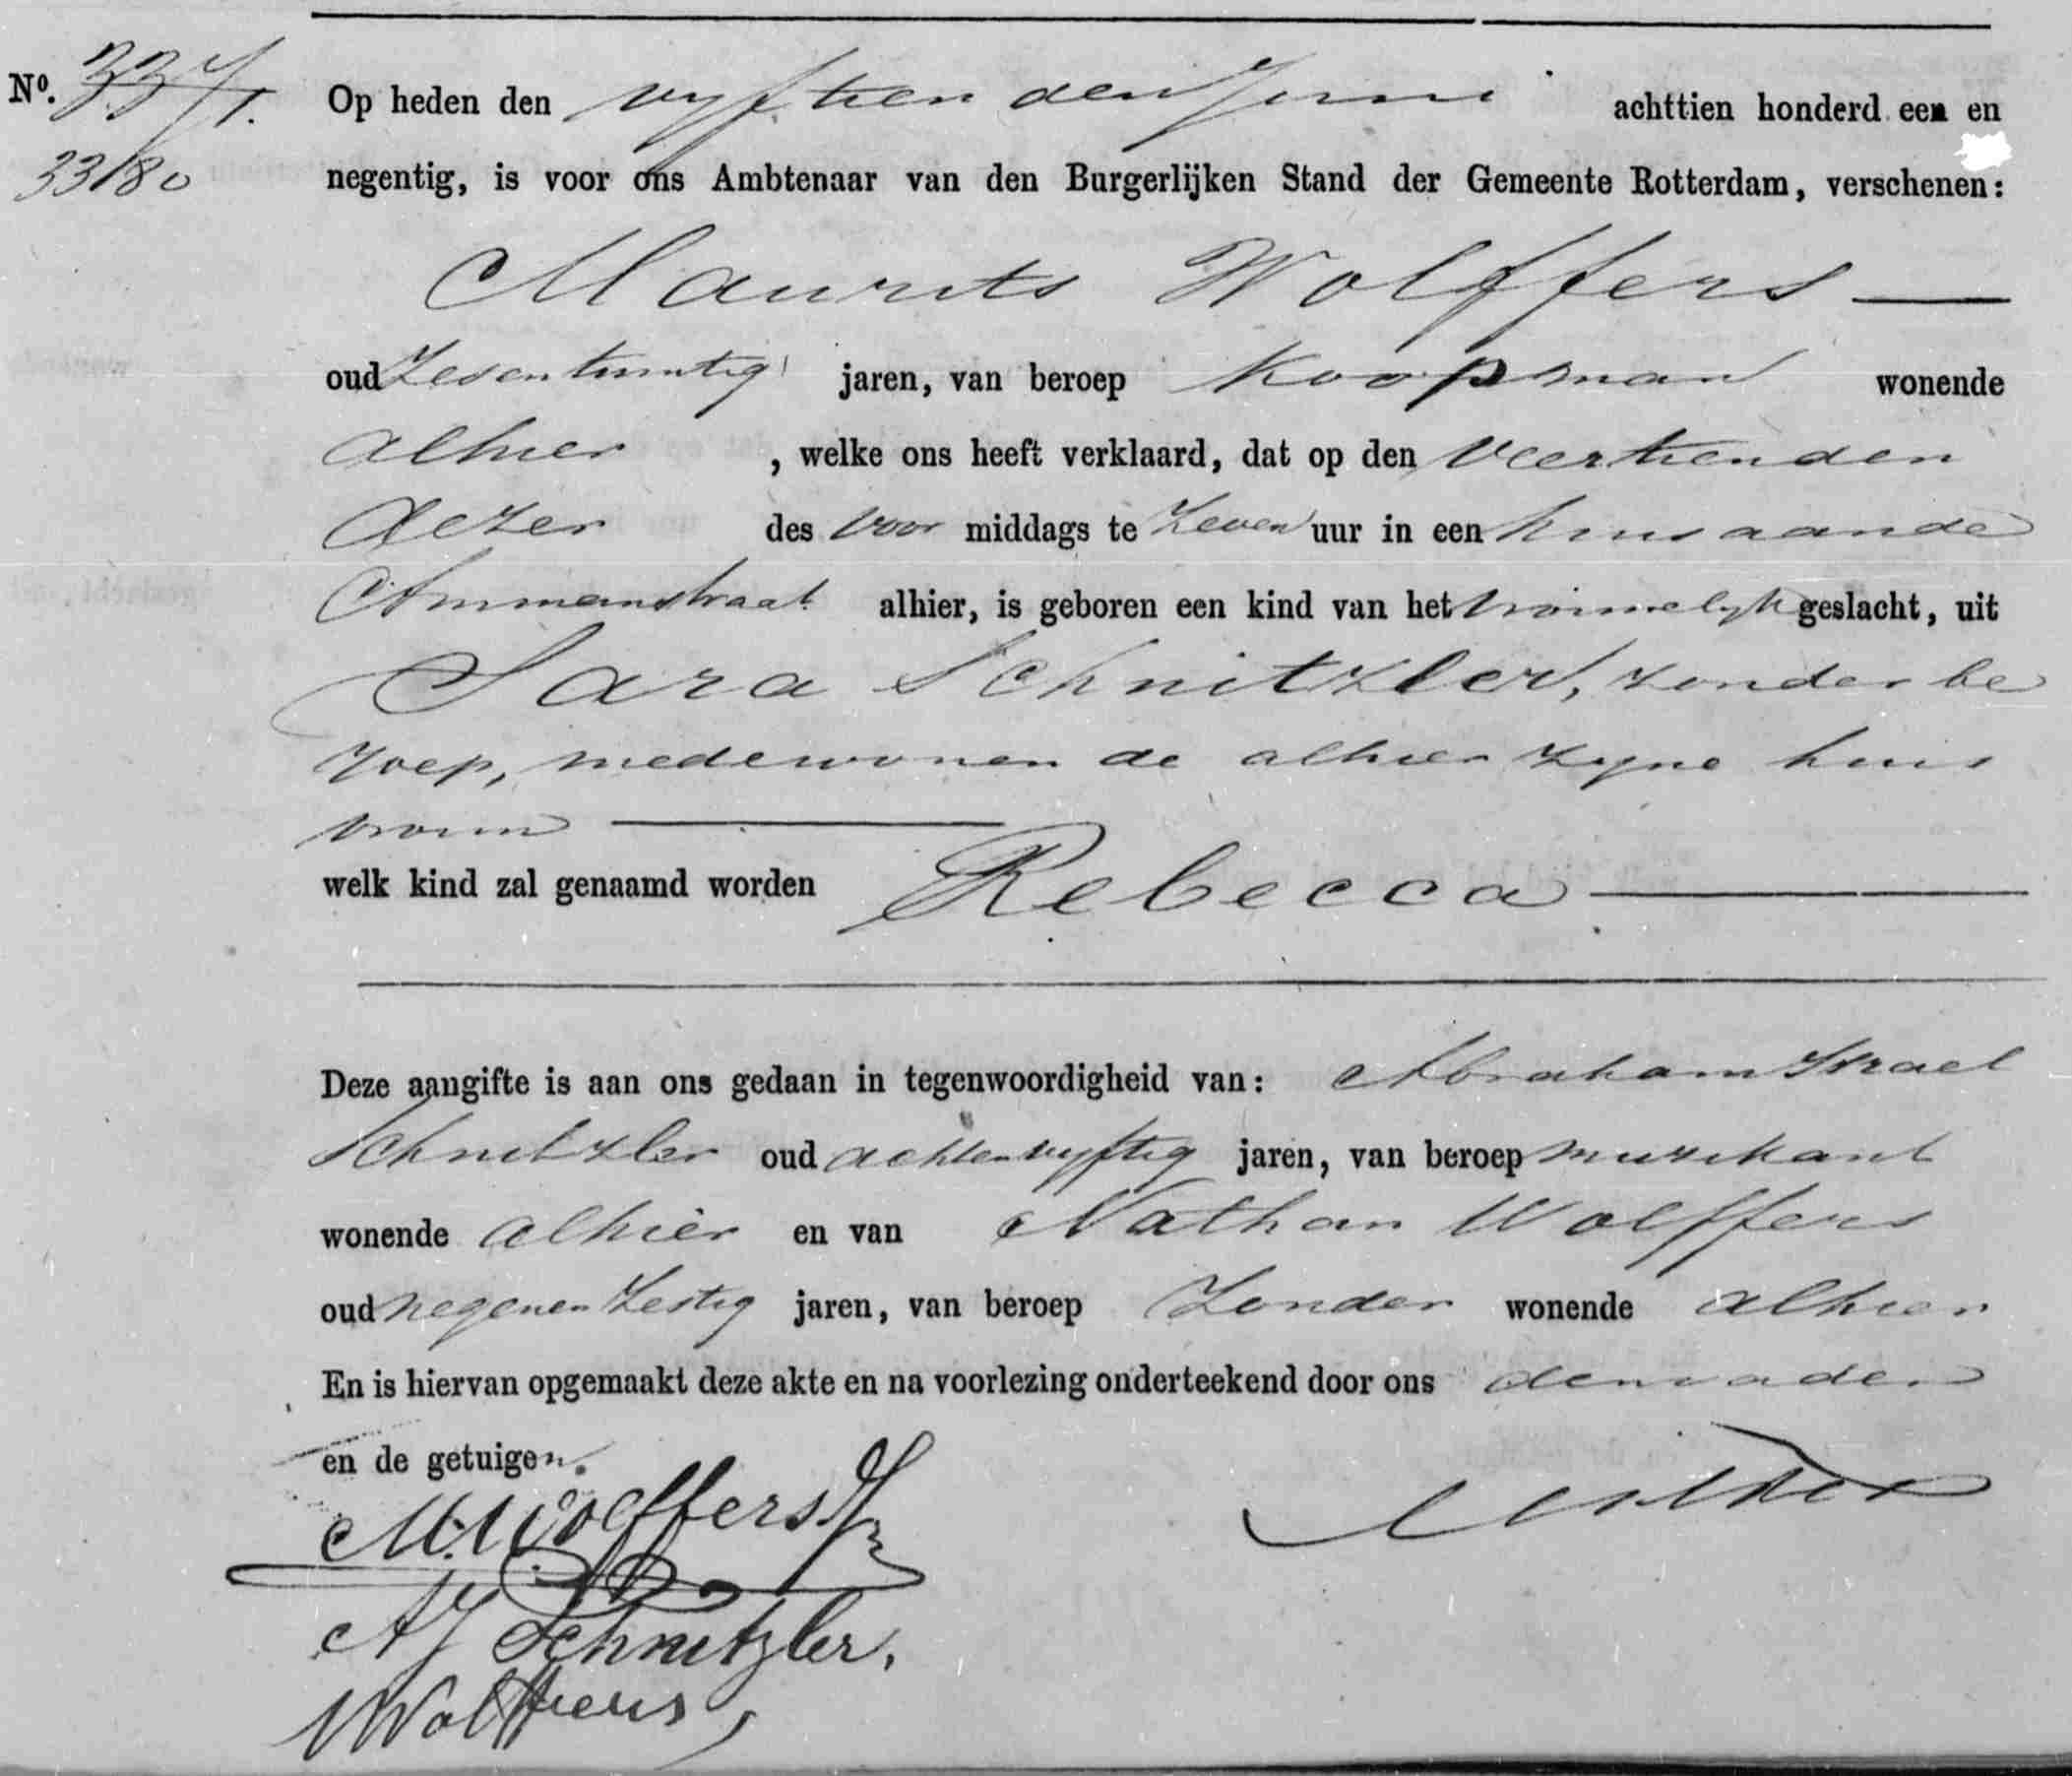 No. 3371. Op heden den vyftienden Juni achttien honderd een en
3380 negentig, is voor ons Ambtenaar van den Burgerlijken Stand der Gemeente Rotterdam, verschenen:
Maurits Wolffers
oud Zesentwintig jaren, van beroep Koopman wonende
alhier, welke ons heeft verklaard, dat op den Veertienden
dezer des voor middags te Zeven uur in een huis aan de
Ammanstraat alhier, is geboren een kind van het vrouwelyk geslacht, uit
Sara Schnitzler, zonder be
roep, medewonende alhier zyne huis
vrouw
welk kind zal genaamd worden Rebecca
Deze aangifte is aan ons gedaan in tegenwoordigheid van: Abraham Israel
Schnitzler oud achtenvyftig jaren, van beroep muzikant
wonende alhier en van Nathan Wolffers
oud negenenzestig jaren, van beroep Zonder wonende alhier
En is hiervan opgemaakt deze akte en na voorlezing onderteekend door ons den vader
en de getuigen.
M. Wolffers Jz
AJ Schnitzler,
N Wolffers,